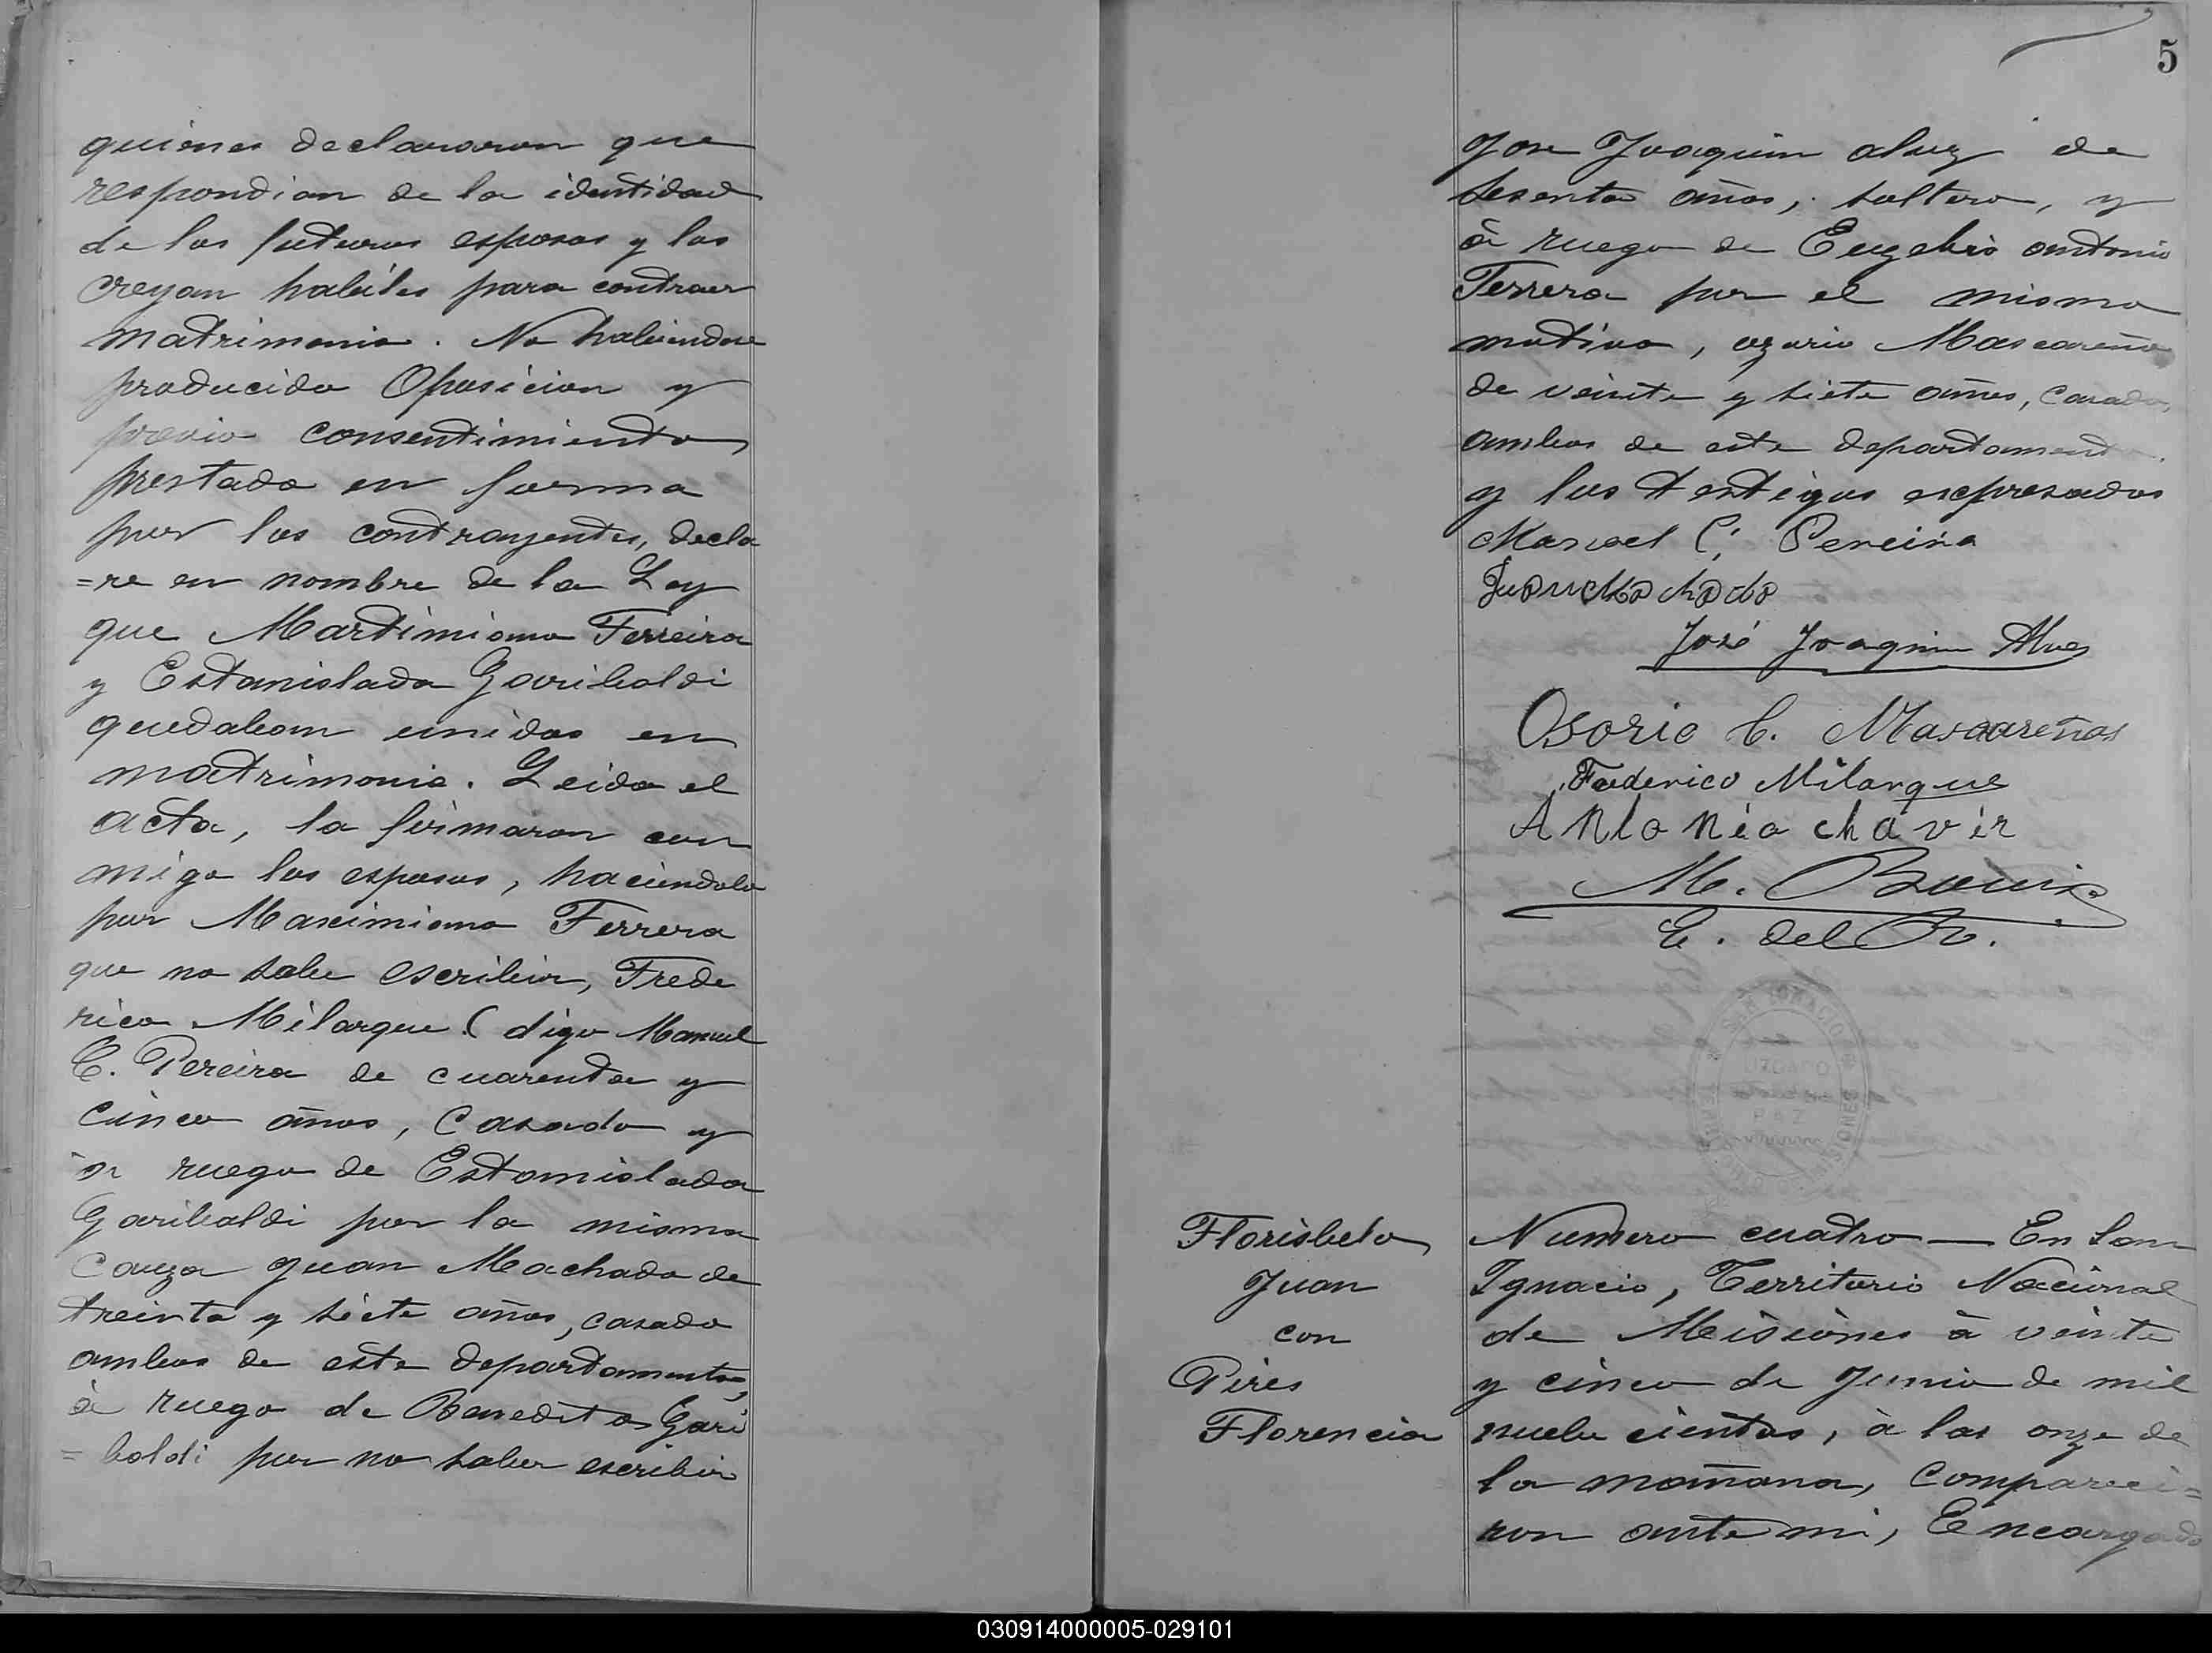 quienes declararon que
respondian de la identidad
de los futuros esposos y los
creyan habiles para contraer
matrimonio. No habiendose
producido Oposicion y
previo consentimiento
prestado en forma
por los contrayentes, decla
=re en nombre de la Ley
que Martimiano Ferreira
y Estanislada Garibaldi
quedaban unidos en
matrimonio. Leida el
acta, la firmaron con
migo los esposos, haciendolo
por Maximiano Ferrera
que no sabe escribir, Frede
rico Milarque (digo Manuel
C. Pereira de cuarenta y
cinco años, Casado y
à ruego de Estanislada
Garibaldi por la misma
Cauza Juan Machado de
treinta y siete años, casado
ambos de este departamento,
à ruego de Benedito Gari
=baldi por no saber escribir
5
Jose Joaquin alvez de
sesenta años, soltero, y
à ruego de Eugebio antonio
Ferrera por el mismo
motivo, ozorio Mascareño
de veinte y siete años, Casado,
ambos de este departamento
y los testigos expresados
Manuel C. Pereira
Juan Machado
José Joaquin Alves
Osorio C. Mascareñas
Federico Milarque
Antonio chavir
M.
E. del R.
SAN IGNACIO
JUZGADO
PAZ
MISIONES
Florisbelo
Juan
con
Pires
Florencia
Numero cuatro — En San
Ignacio, Territorio Nacional
de Misiones à veinte
y cinco de Junio de mil
nuebe cientos, à las onze de
la mañana, comparecie=
ron ante mi, Encargado
030914000005-029101